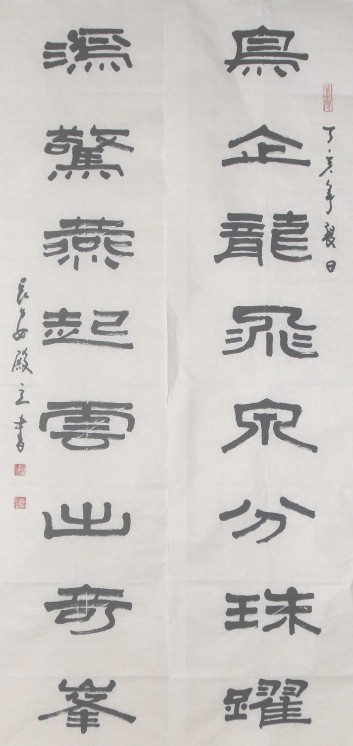 丁亥年夏日
鳥企龍飛泉分珠躍
鴻驚燕起雲出奇峯
長安殿立書